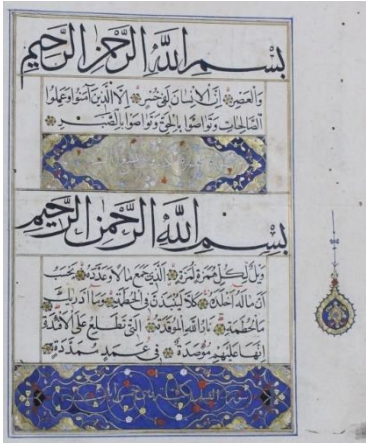 بسم الله الرحمن الرحيم
والعصر إن الإنسان لفي خسر إلا الذين آمنوا وعملوا
الصالحات وتواصوا بالحق وتواصوا بالصبر
بسم الله الرحمن الرحيم
ويل لكل همزة لمزة الذي جمع مالا وعدده يحسب
أن ماله أخلده كلا لينبذن في الحطمة وما أدريك
ما الحطمة نار الله الموقدة التي تطلع على الأفئدة
إنها عليهم موصدة في عمد ممددة
سورة الفيل